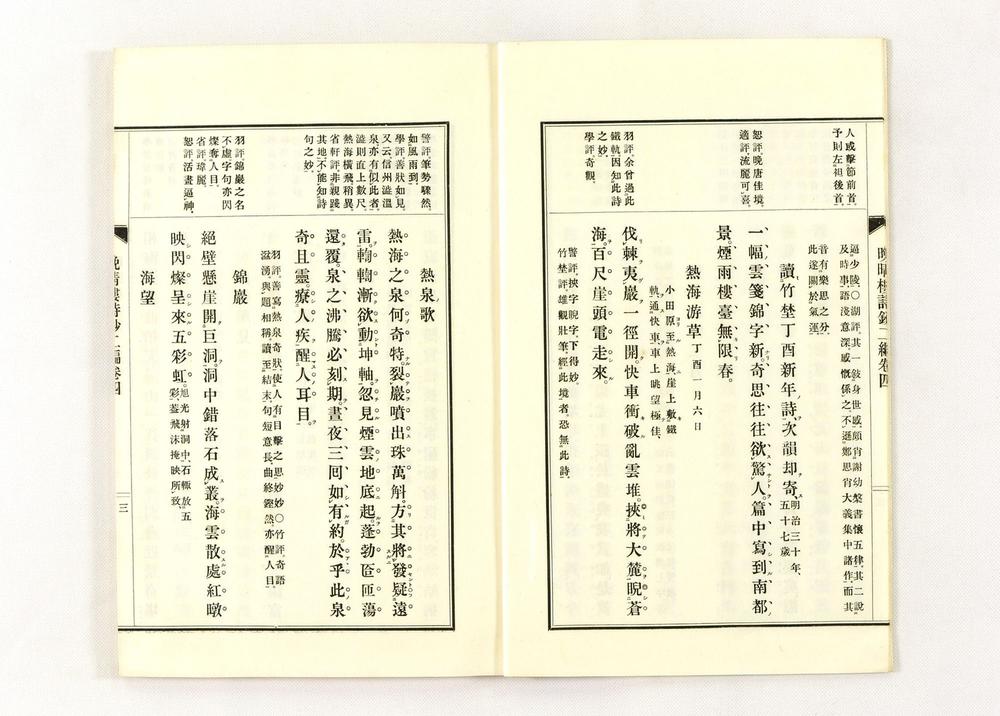 人或擊節前首、
予則左袒後首、
恕評、晚唐佳境、
適評、流麗可喜、
羽評、余曾過此
鐵軌、因知此詩
之妙、
學評、奇觀、
逼少陵、○湖評、其一敍身世感、頗肖謝幼槃書懷五律、其二說
及時事、語淺意深、感慨係之、不遜鄭思肖大義集中諸作、而其
音有樂思之分、
此遂關於氣運、
讀竹埜丁酉新年詩、次韻却寄、明治三十年、
五十七歲
一幅雲箋錦字新、奇思往往欲驚人、篇中寫到南都
景、煙雨樓臺無限春。
熱海游草 丁酉一月六日
小田原至熱海、崖上敷鐵
軌、通快車、車上眺望極佳、
伐棘夷巖一徑開、快車衝破亂雲堆。挾將大麓睨蒼
海、百尺崖頭電走來。
警評、挾字睨字下得妙、
竹埜評、雄觀壯筆、經此境者、恐無此詩、
警評、筆勢驟然、
如風雨到、
學評、善狀如見、
又云、信州澁溫
泉、亦有似此者、
澁則直上數尺、
熱海橫飛稍異、
省軒評、非親踐
其地、不能知詩
句之妙、
羽評、錦巖之名
不虛、字句亦閃
燦奪人目、
省評、瑋麗、
恕評、活畫逼神、
熱泉歌
熱海之泉何奇特、裂巖噴出珠萬斛。方其將發疑遠
雷、輷輷漸欲動坤軸。忽見煙雲地底起、蓬勃匼匝蕩
還覆。泉之沸騰必刻期、晝夜三回如有約。於乎此泉
奇且靈、療人疾醒人耳目。
羽評、善寫熱泉奇狀、使人有目擊之思、妙妙、○竹評、奇語
湓湧、與題相稱、讀至結末、句短意長、曲終鏗然、亦醒人目、
錦巖
絕壁懸崖開巨洞、洞中錯落石成叢。海雲散處紅暾
映、閃燦呈來五彩虹。旭光射洞中、石輒放五
彩、蓋飛沫掩映所致、
海望
三